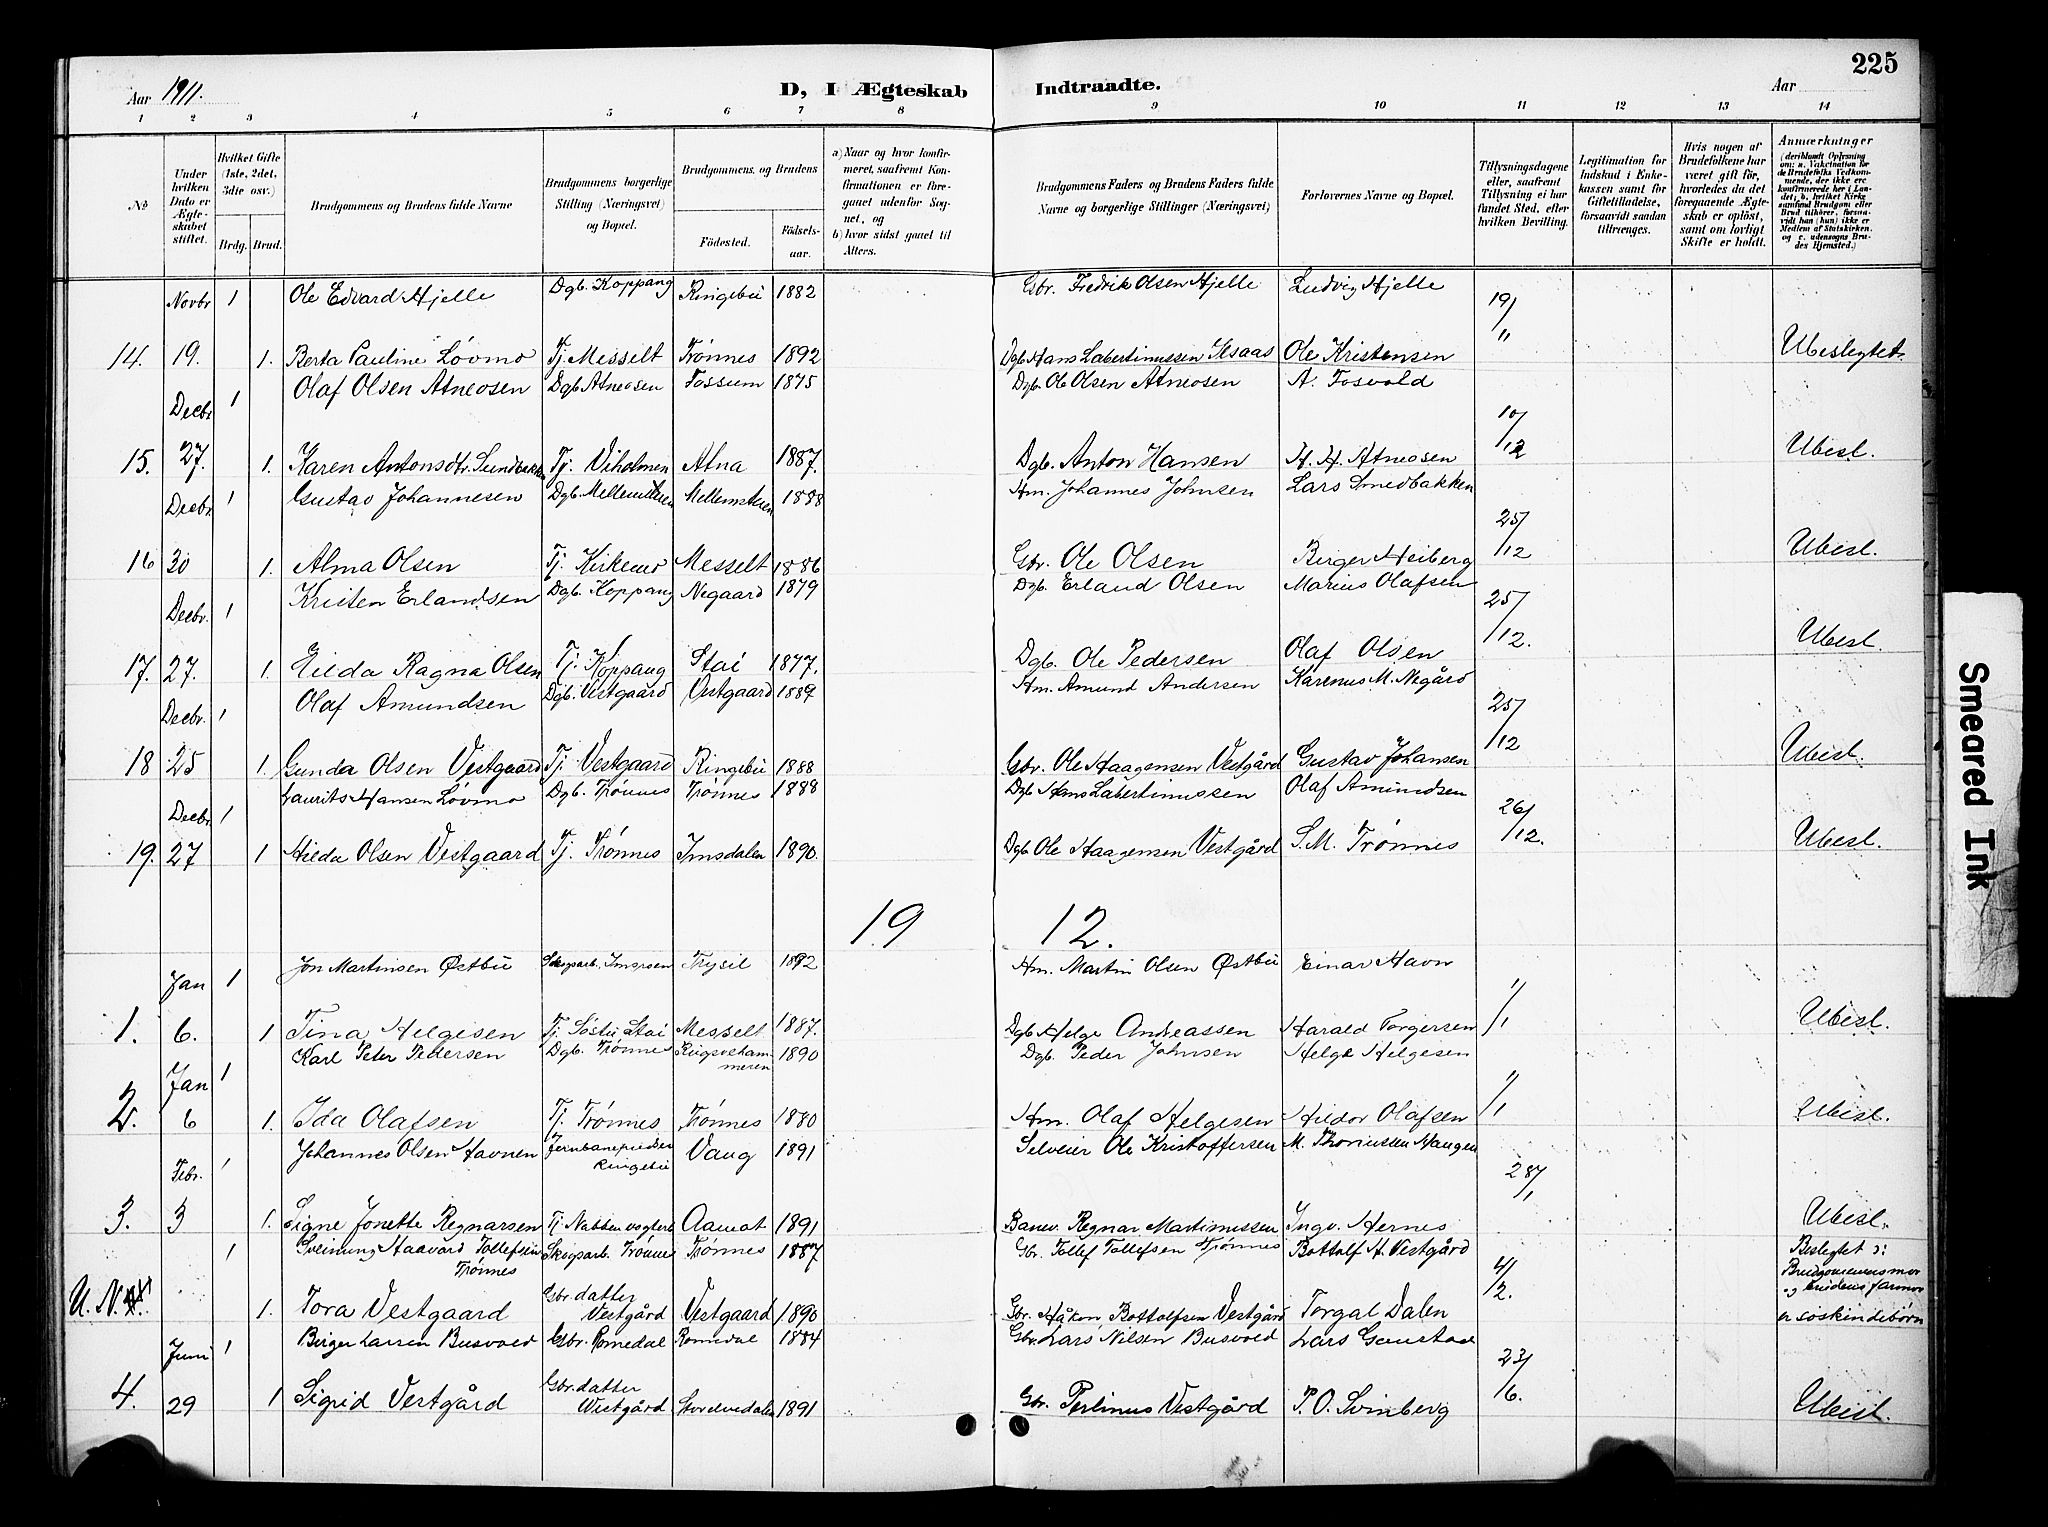 225
Aar 1911. D, I Ægteskab Indtraadte. Aar
1 2 3 4 5 6 7 8 9 10 11 12 13 14
No
Under hvilken Dato er Ægteskabet stiftet.
Hvilket Gifte (1ste, 2det, 3die osv.)
Brdg. Brud.
Brudgommens og Brudens fulde Navne
Brudgommens borgerlige Stilling (Næringsvei) og Bopæl.
Brudgommens og Brudens
Födested. Födsels-aar.
a) Naar og hvor konfirmeret, saafremt Konfirmationen er foregaaet udenfor Sognet, og
b) hvor sidst gaaet til Alters.
Brudgommens Faders og Brudens Faders fulde Navne og borgerlige Stillinger (Næringsvei)
Forlovernes Navne og Bopæl.
Tillysningsdagene eller, saafremt Tillysning ei har fundet Sted, efter hvilken Bevilling.
Legitimation for Indskud i Enkekassen samt for Giftetilladelse, forsaavidt saadan tiltrænges.
Hvis nogen af Brudefolkene har været gift för, hvorledes du det foregaaende Ægteskab er oplöst, samt om lovligt Skifte er holdt.
Anmærkninger (deriblandt Oplysning om: a. Vakcination for de Brudefolks Vedkommende, der ikke ere konfirmerede her i Landet; b. hvilket Kirkesamfund Brudgom eller Brud tilhörer, forsaavidt han (hun) ikke er Medlem af Statskirken, og c. udensogns Brudes Hjemsted.)
Novbr 1 Ole Edvard Hjelle Dgb. Koppang Ringebu 1882 Gbr. Fredrik Olsen Hjelle Ludvig Hjelle 19/11
14. 19. 1. Berta Pauline Lövmo Tj. Messelt Trönnes 1892 Dgb. Hans Labertinussen Ilsaas Ole Kristensen Ubeslegtet.
Decbr 1 Olaf Olsen Atneosen Dgb. Atneosen Fossum 1875 Dgb. Ole Olsen Atneosen A. Fosvold 10/12
15. 27. 1. Karen Antonsdtr. Sundbakken Tj. Viholmen Atna 1887. Dgb. Anton Hansen H. H. Atneosen Ubesl.
Decbr 1 Gustav Johannesen Dgb. Mellemilsen 1888 Hm. Johannes Johnsen Lars Smedbakken 25/12
16 30 1. Alma Olsen Tj. Kirkemo Messelt 1886 Gbr. Ole Olsen Birger Heiberg Ubesl.
Decbr. 1 Kristen Erlandsen Dgb. Koppang Negaard 1879 Dgb. Erland Olsen Marius Olafsen 25/12.
17. 27. 1. Hilda Ragna Olsen Tj. Koppang Stai 1877. Dgb. Ole Pedersen Olaf Olsen Ubesl.
Decbr. 1 Olaf Amundsen Dgb. Vestgaard Vestgaard 1889 Hm. Amund Andersen Karenus M. Negård 25/12
18 25 1. Gunda Olsen Vestgaard Tj. Vestgaard Ringebu 1888 Gbr. Ole Haagensen Vestgård Gustav Johansen Ubesl.
Decbr 1 Laurits Hansen Lövmo Dgb. Trönnes Trönnes 1888 Dgb Hans Labertinussen Olaf Amundsen 26/12.
19. 27 1 Hilda Olsen Vestgaard Tj. Trönnes Imsdalen 1890. Dgb. Ole Haagensen Vestgård S. M. Trönnes Ubesl.
19 12.
Jan 1 Jon Martinsen Østbu Skogsarb. Imsroen Trysil 1892 Hm. Martin Olsen Østbu Einar Havn 1/1
1. 6. 1 Tina Helgesen Tj. Söstu Stai Messelt 1887. Dgb. Helge Andreassen Harald Torgersen Ubesl.
Jan 1 Karl Peter Pedersen Dgb. Trönnes Ringsvehammeren 1890 Dgb. Peder Johnsen Helge Helgesen 1/1
2. 6 1. Ida Olafsen Tj. Trönnes Trönnes 1880 Hm. Olaf Helgesen Hildor Olafsen Ubesl.
Febr. 1 Johannes Olsen Havnen Ringebu Vang 1891 Selveier Ole Kristoffersen M. Thoriussen Haugen 28/1
3. 3 1. Signe Jonette Regnarsen Tj. Aamot 1891 Banev. Regnar Martinussen Ingv. Hernes Ubesl.
1 Sveinung Haavard Tollefsen Trönnes Skogsarb. Trönnes Trönnes 1887 Gbr. Tollef Tollefsen Trönnes Bottolf H. Vestgård 4/2. Beslegtet ɔ: Brudgommens mor og brudens farmor er söskindebörn
U. N. 1. Tora Vestgaard Gbr. datter Vestgård Vestgaard 1890 Gbr. Håkon Bottolfsen Vestgård Torgal Dalen
Juni 1 Birger Larsen Busvold Gbr. Romedal Romedal 1884 Gbr. Lars Nilsen Busvold Lars Gaustad 23/6.
4. 29 1 Sigrid Vestgård Gbr. datter Westgård Storelvedalen 1891 Gbr. Perlinus Vestgård P. O. Svinberg Ubesl.
Smeared Ink